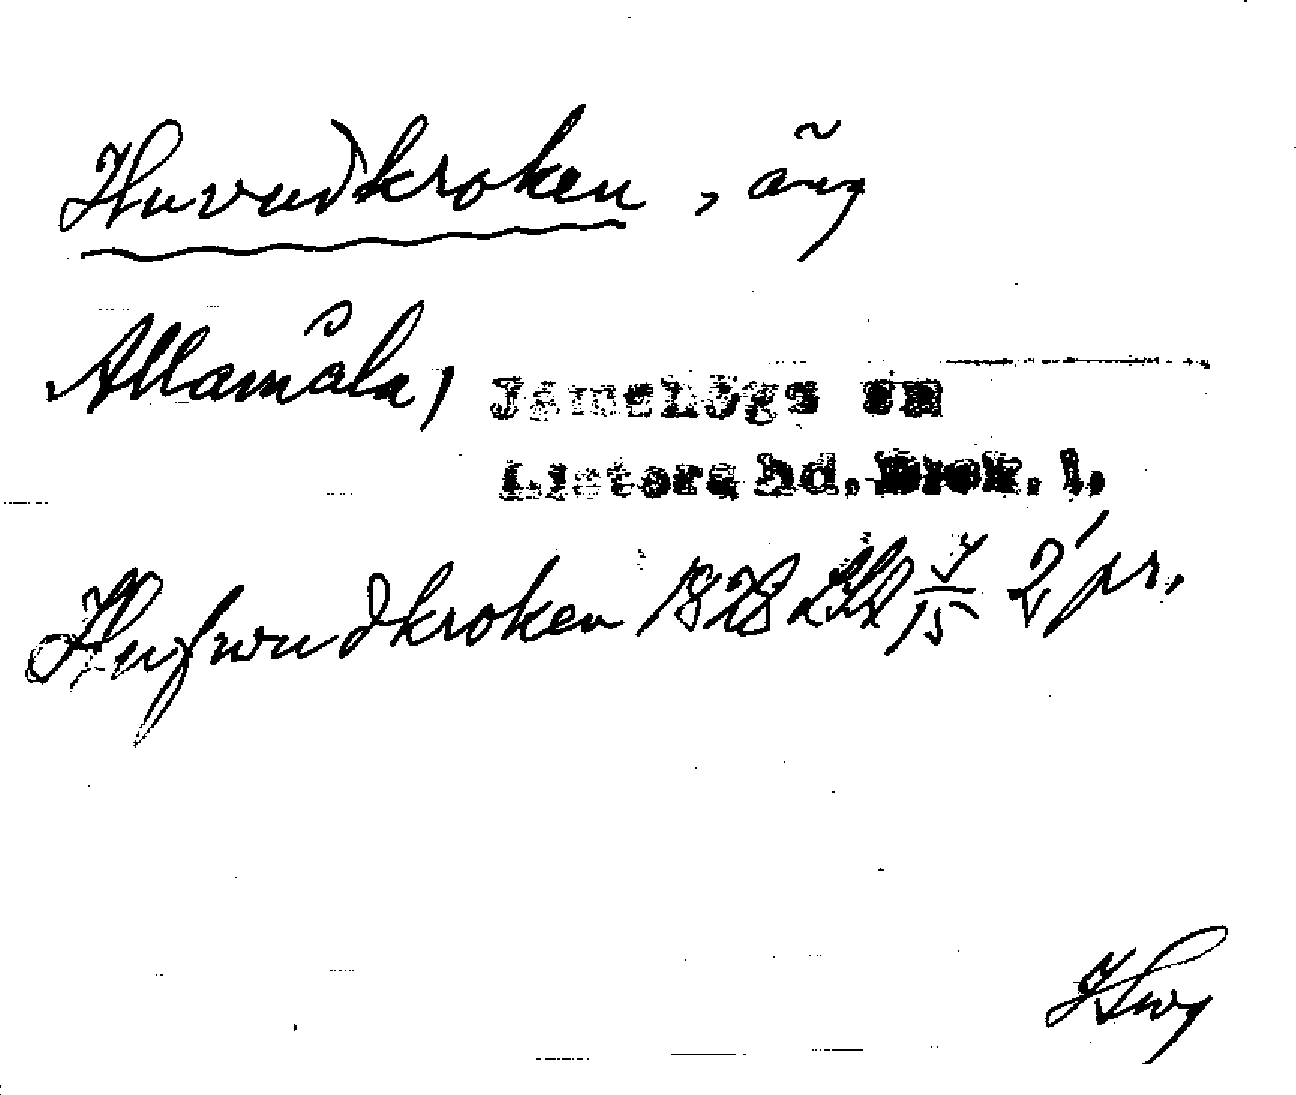 Huvudkroken, äng
Allamåla, Jämshögs sn
Listers hd. Blek. l.
Hufwudkroken 1828 LSk 4/15 2 pr.